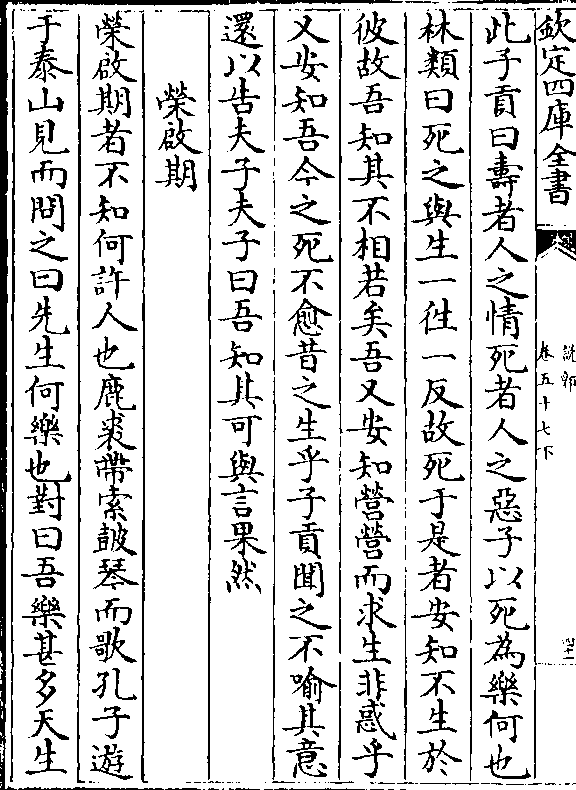 欽定四庫全書
說郛
卷五十七下
此子貢曰壽者人之情死者人之惡子以死為樂何也
林類曰死之與生一徃一反故死于是者安知不生於
彼故吾知其不相若矣吾又安知營營而求生非惑乎
又安知吾今之死不愈昔之生乎子貢聞之不喻其意
還以告夫子夫子曰吾知其可與言果然
榮啟期
榮啟期者不知何許人也鹿裘帶索鼓琴而歌孔子遊
于泰山見而問之曰先生何樂也對曰吾樂甚多天生